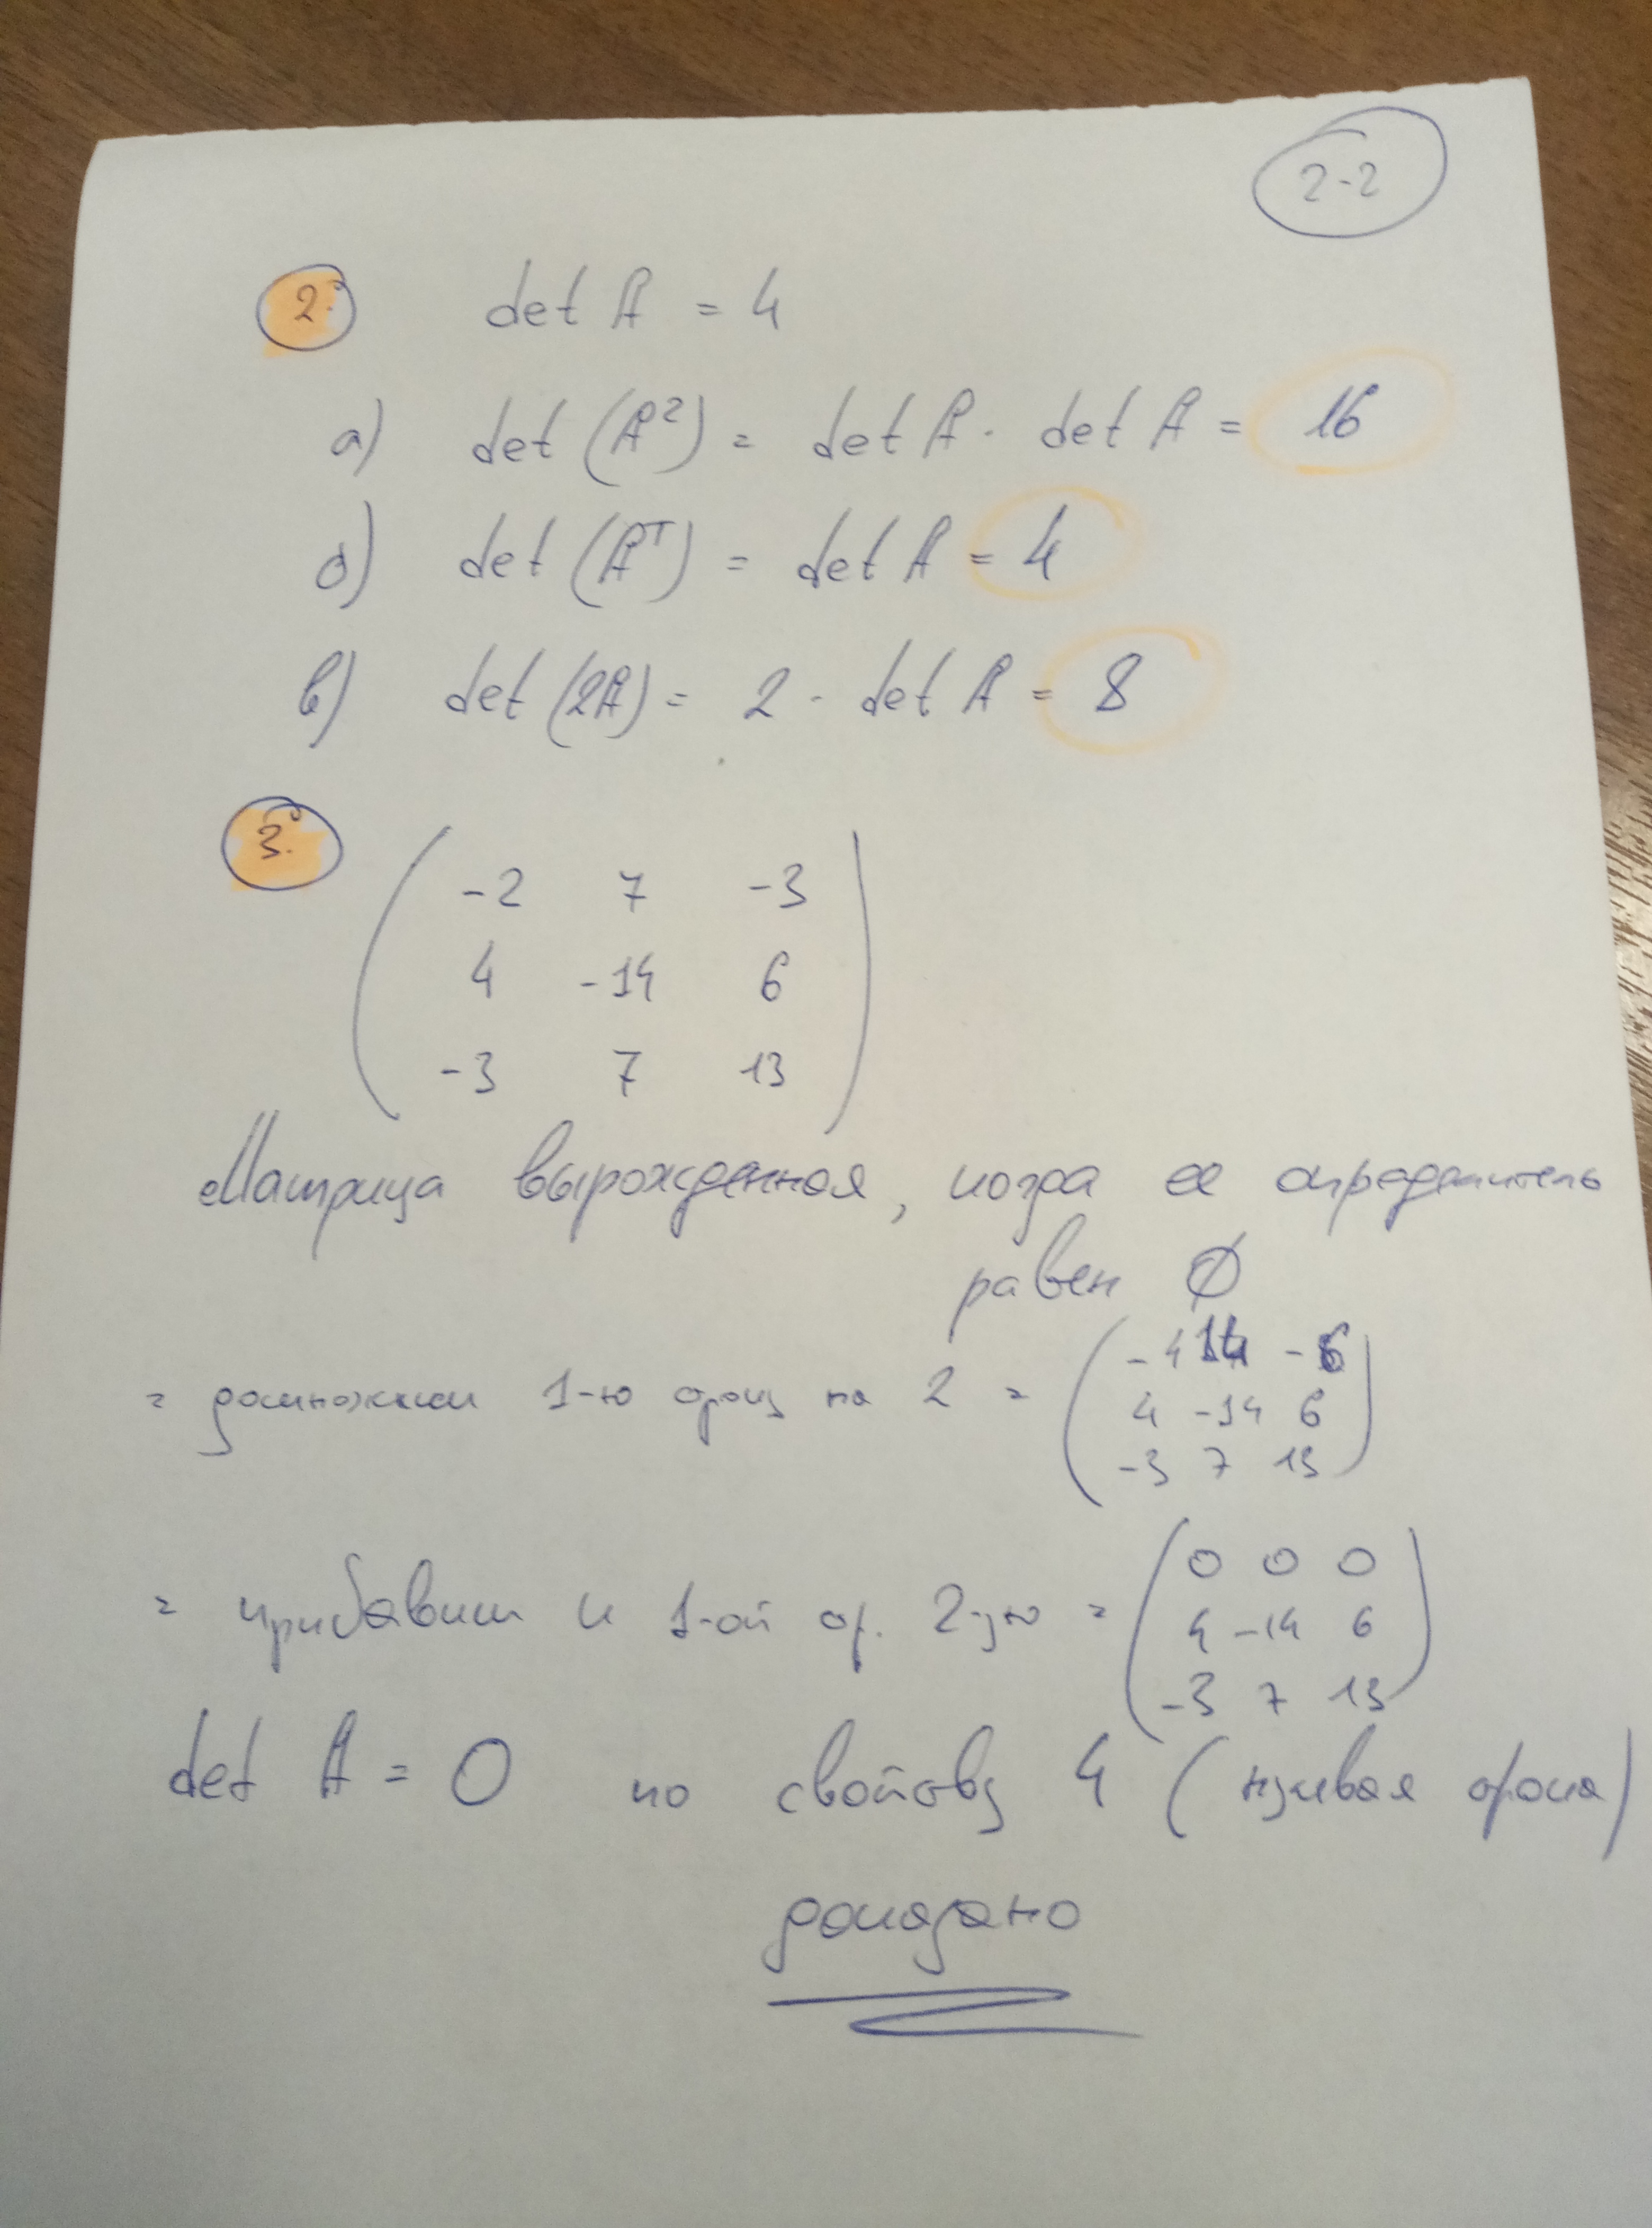 2-2
2. det A = 4
а) det (A²) = det A · det A = 16
б) det (Aᵀ) = det A = 4
в) det (2A) = 2 · det A = 8
3.
-2 7 -3
4 -14 6
-3 7 13
Матрица вырожденная, когда ее определитель
равен 0
-4 14 -6
= домножим 1-ю строку на 2 = 4 -14 6
-3 7 13
0 0 0
= прибавим к 1-ой стр. 2-ую = 4 -14 6
-3 7 13
det A = 0 по свойству 4 (нулевая строка)
доказано